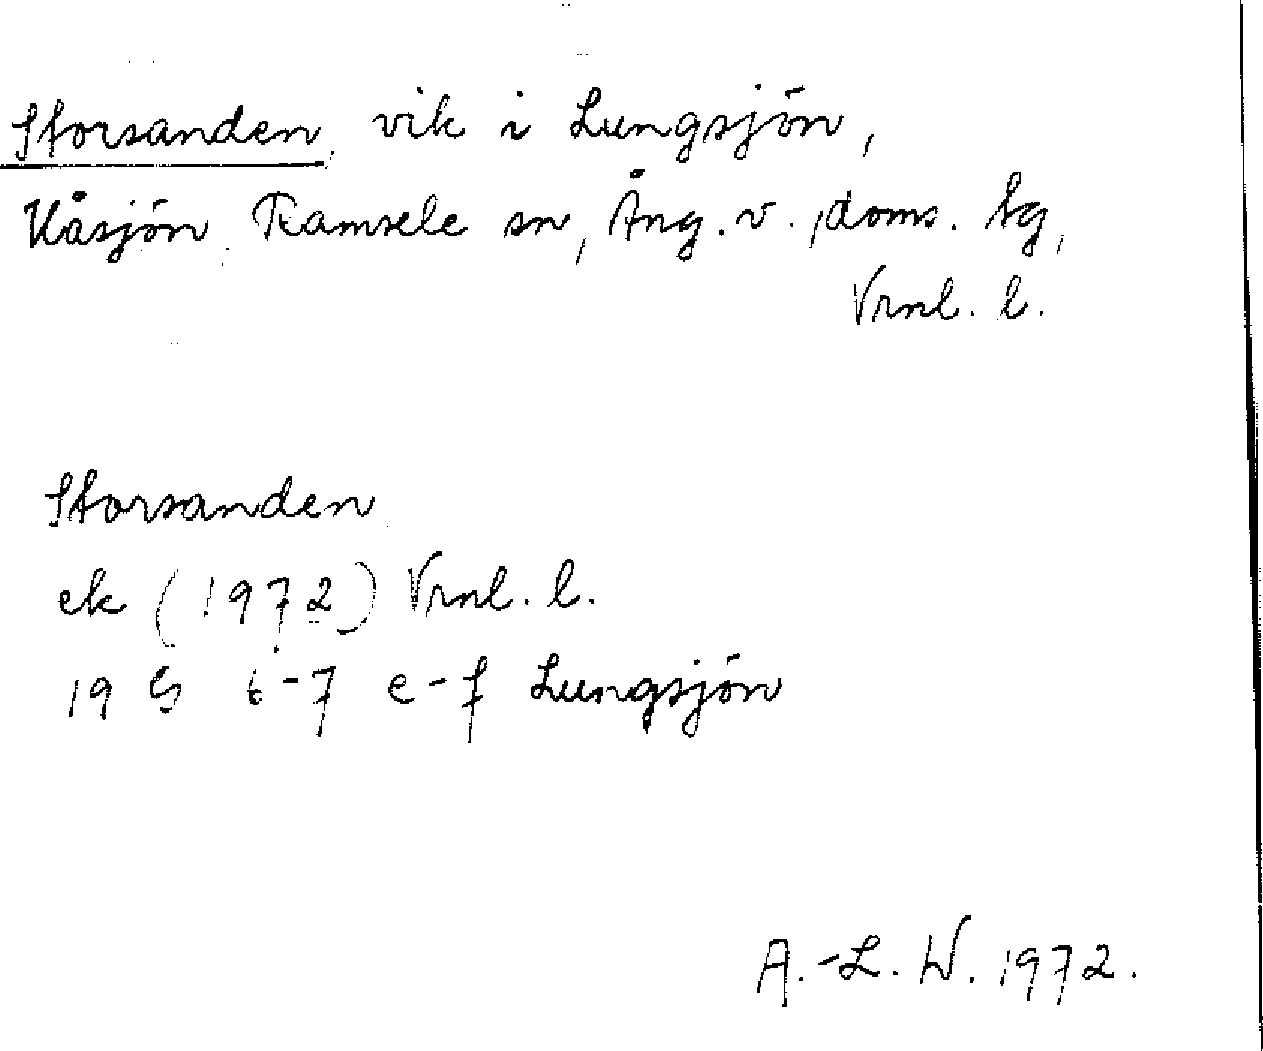 Storsanden, vik i Lungsjön,
Våsjön, Ramsele sn, Ång. v., doms. tg,
Vrnl. l.
Storsanden
ek (1972) Vrnl. l.
19 G 6-7 e-f Lungsjön
A.-L. W. 1972.